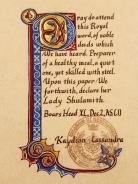 Pray do attend
this Royal
word, of noble
deeds which
We have heard. Preparer
of a healthy meal, a quiet
one, yet skilled with steel.
Upon this paper We
forthwith, declare her
Lady Shulamith.
Boars Head XL, Dec 2, AS LO
Kaydian Cassandra